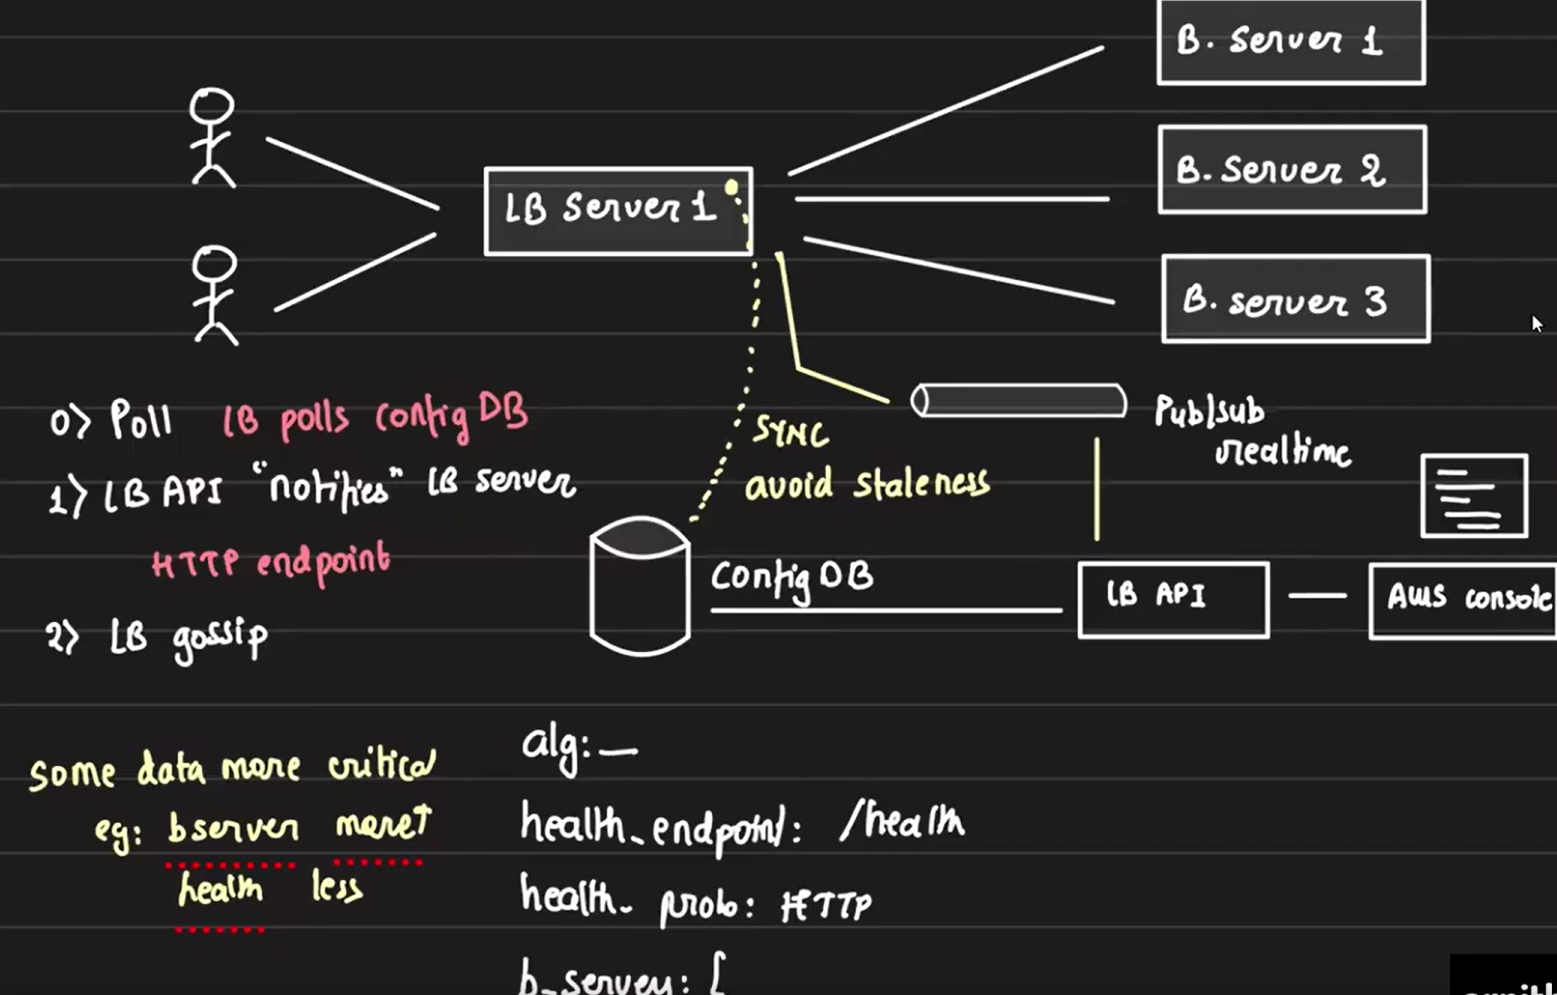 B. Server 1
B. Server 2
B. server 3
LB Server 1
0> Poll LB polls Config DB
1> LB API "notifies" LB server
HTTP endpoint
2> LB gossip
SYNC
avoid staleness
Pub/sub
realtime
Config DB
LB API
AWS console
some data more critical
eg: bserver more↑
health less
alg: —
health_endpoint: /health
health_prob: HTTP
b_server: [